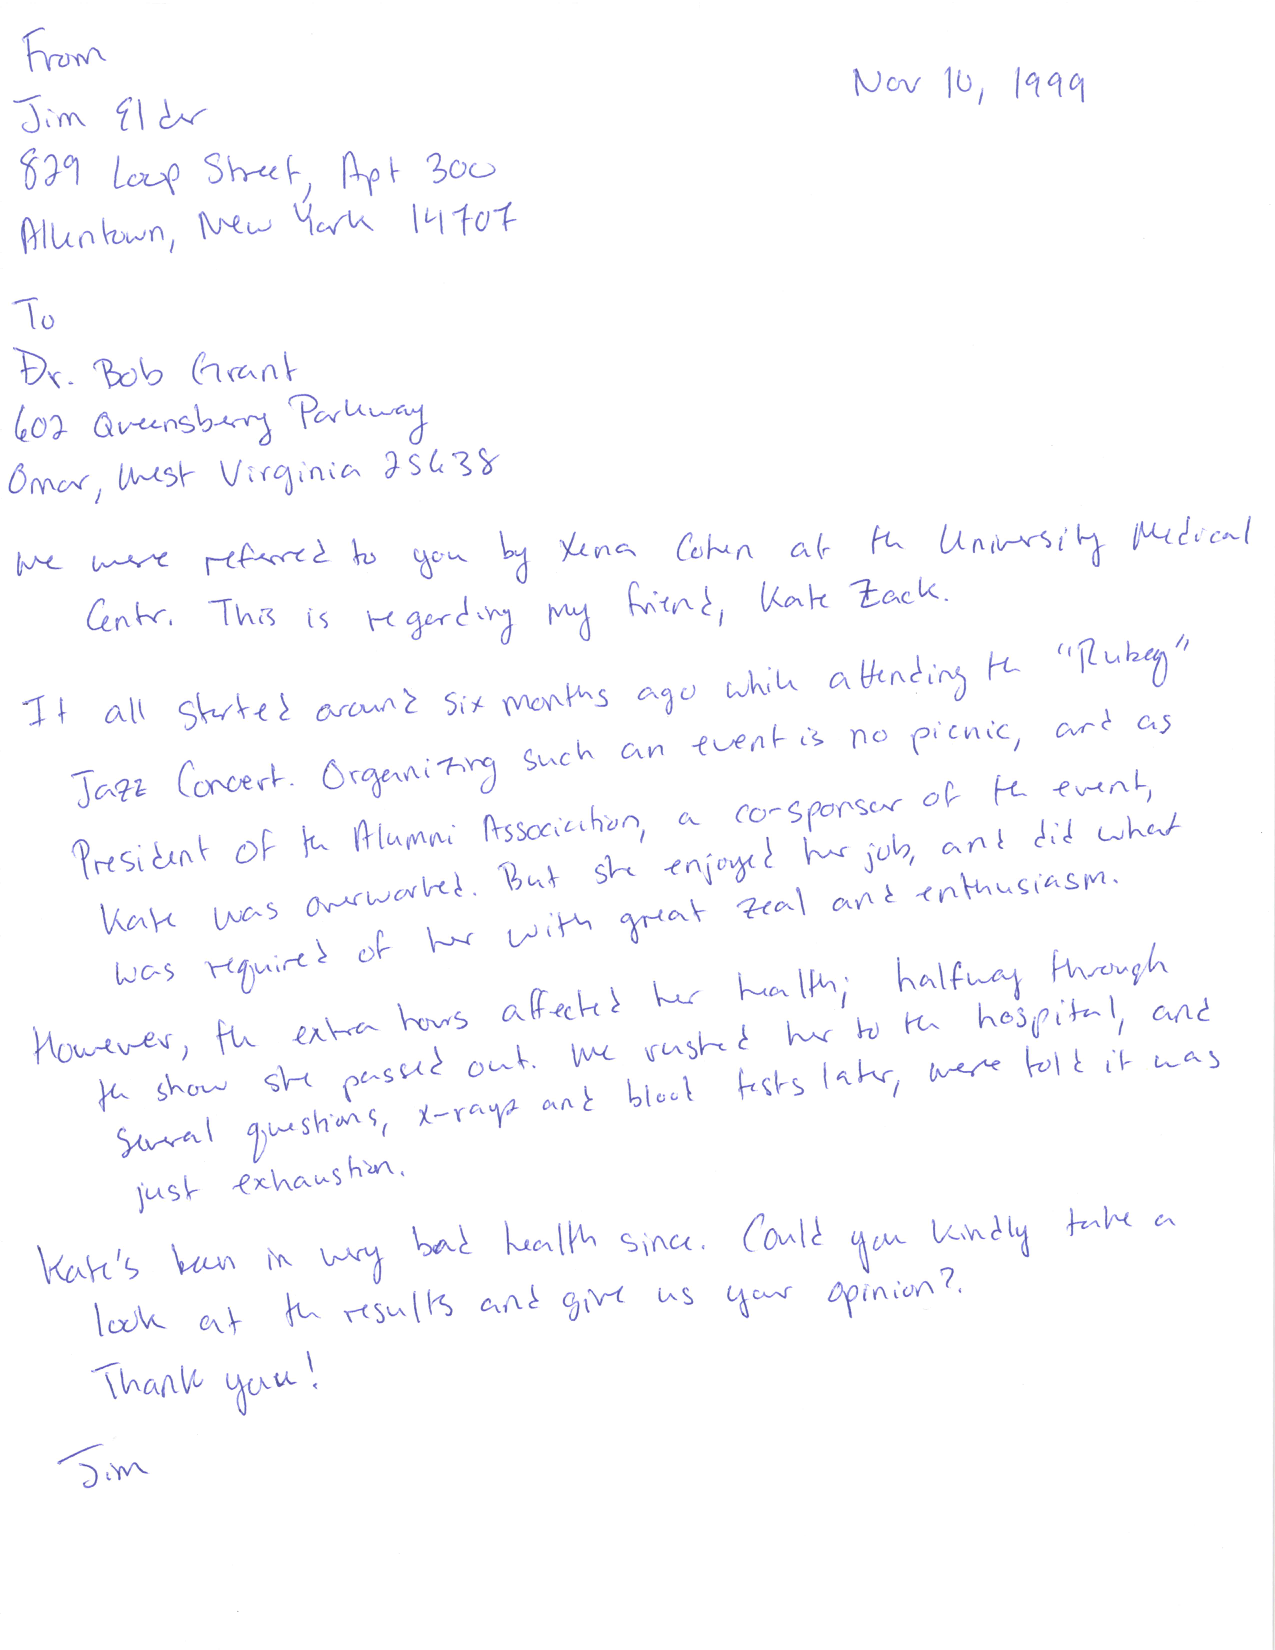 From
Nov 10, 1999
Jim Elder
829 Loop Street, Apt 300
Allentown, New York 14707
To
Dr. Bob Grant
602 Queensberry Parkway
Omar, West Virginia 25638
We were referred to you by Xena Cohen at the University Medical
Center. This is regarding my friend, Kate Zack.
It all started around six months ago while attending the "Rubeq"
Jazz Concert. Organizing such an event is no picnic, and as
President of the Alumni Association, a co-sponsor of the event,
Kate was overworked. But she enjoyed her job, and did what
was required of her with great zeal and enthusiasm.
However, the extra hours affected her health; halfway through
the show she passed out. We rushed her to the hospital, and
several questions, x-rays and blood tests later, were told it was
just exhaustion.
Kate's been in very bad health since. Could you kindly take a
look at the results and give us your opinion?.
Thank you!
Jim